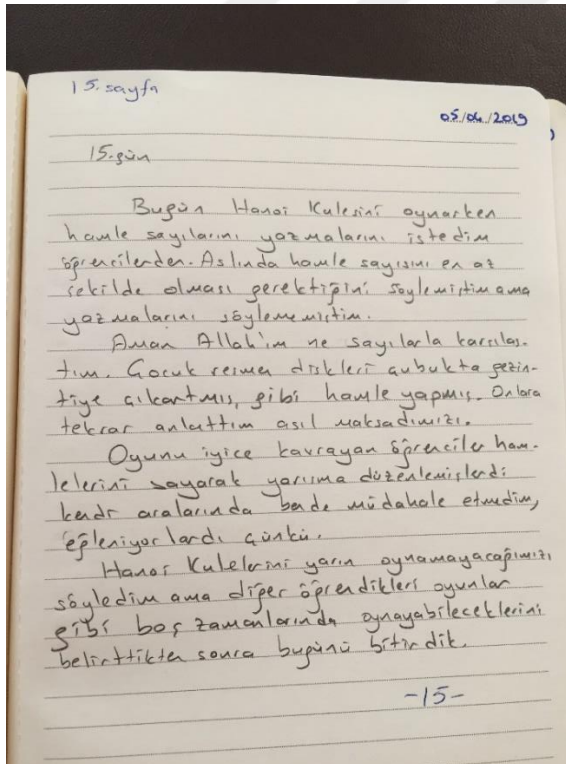 15. sayfa
05/04/2019
15.gün
Bugün Hanoi Kulesini oynarken
hamle sayılarını yazmalarını istedim
öğrencilerden. Aslında hamle sayısını en az
şekilde olması gerektiğini söylemiştim ama
yazmalarını söylememiştim.
Aman Allah'ım ne sayılarla karşılaş-
tım. Çocuk resmen diskleri çubukta gezin-
tiye çıkartmış, gibi hamle yapmış. Onlara
tekrar anlattım asıl maksadımızı.
Oyunu iyice kavrayan öğrenciler ham-
lelerini sayarak yarışma düzenlemişlerdi
kendi aralarında bende müdahale etmedim,
eğleniyorlardı çünkü.
Hanoi Kulelerini yarın oynamayacağımızı
söyledim ama diğer öğrendikleri oyunlar
gibi boş zamanlarında oynayabileceklerini
belirttikten sonra bugünü bitirdik.
-15-